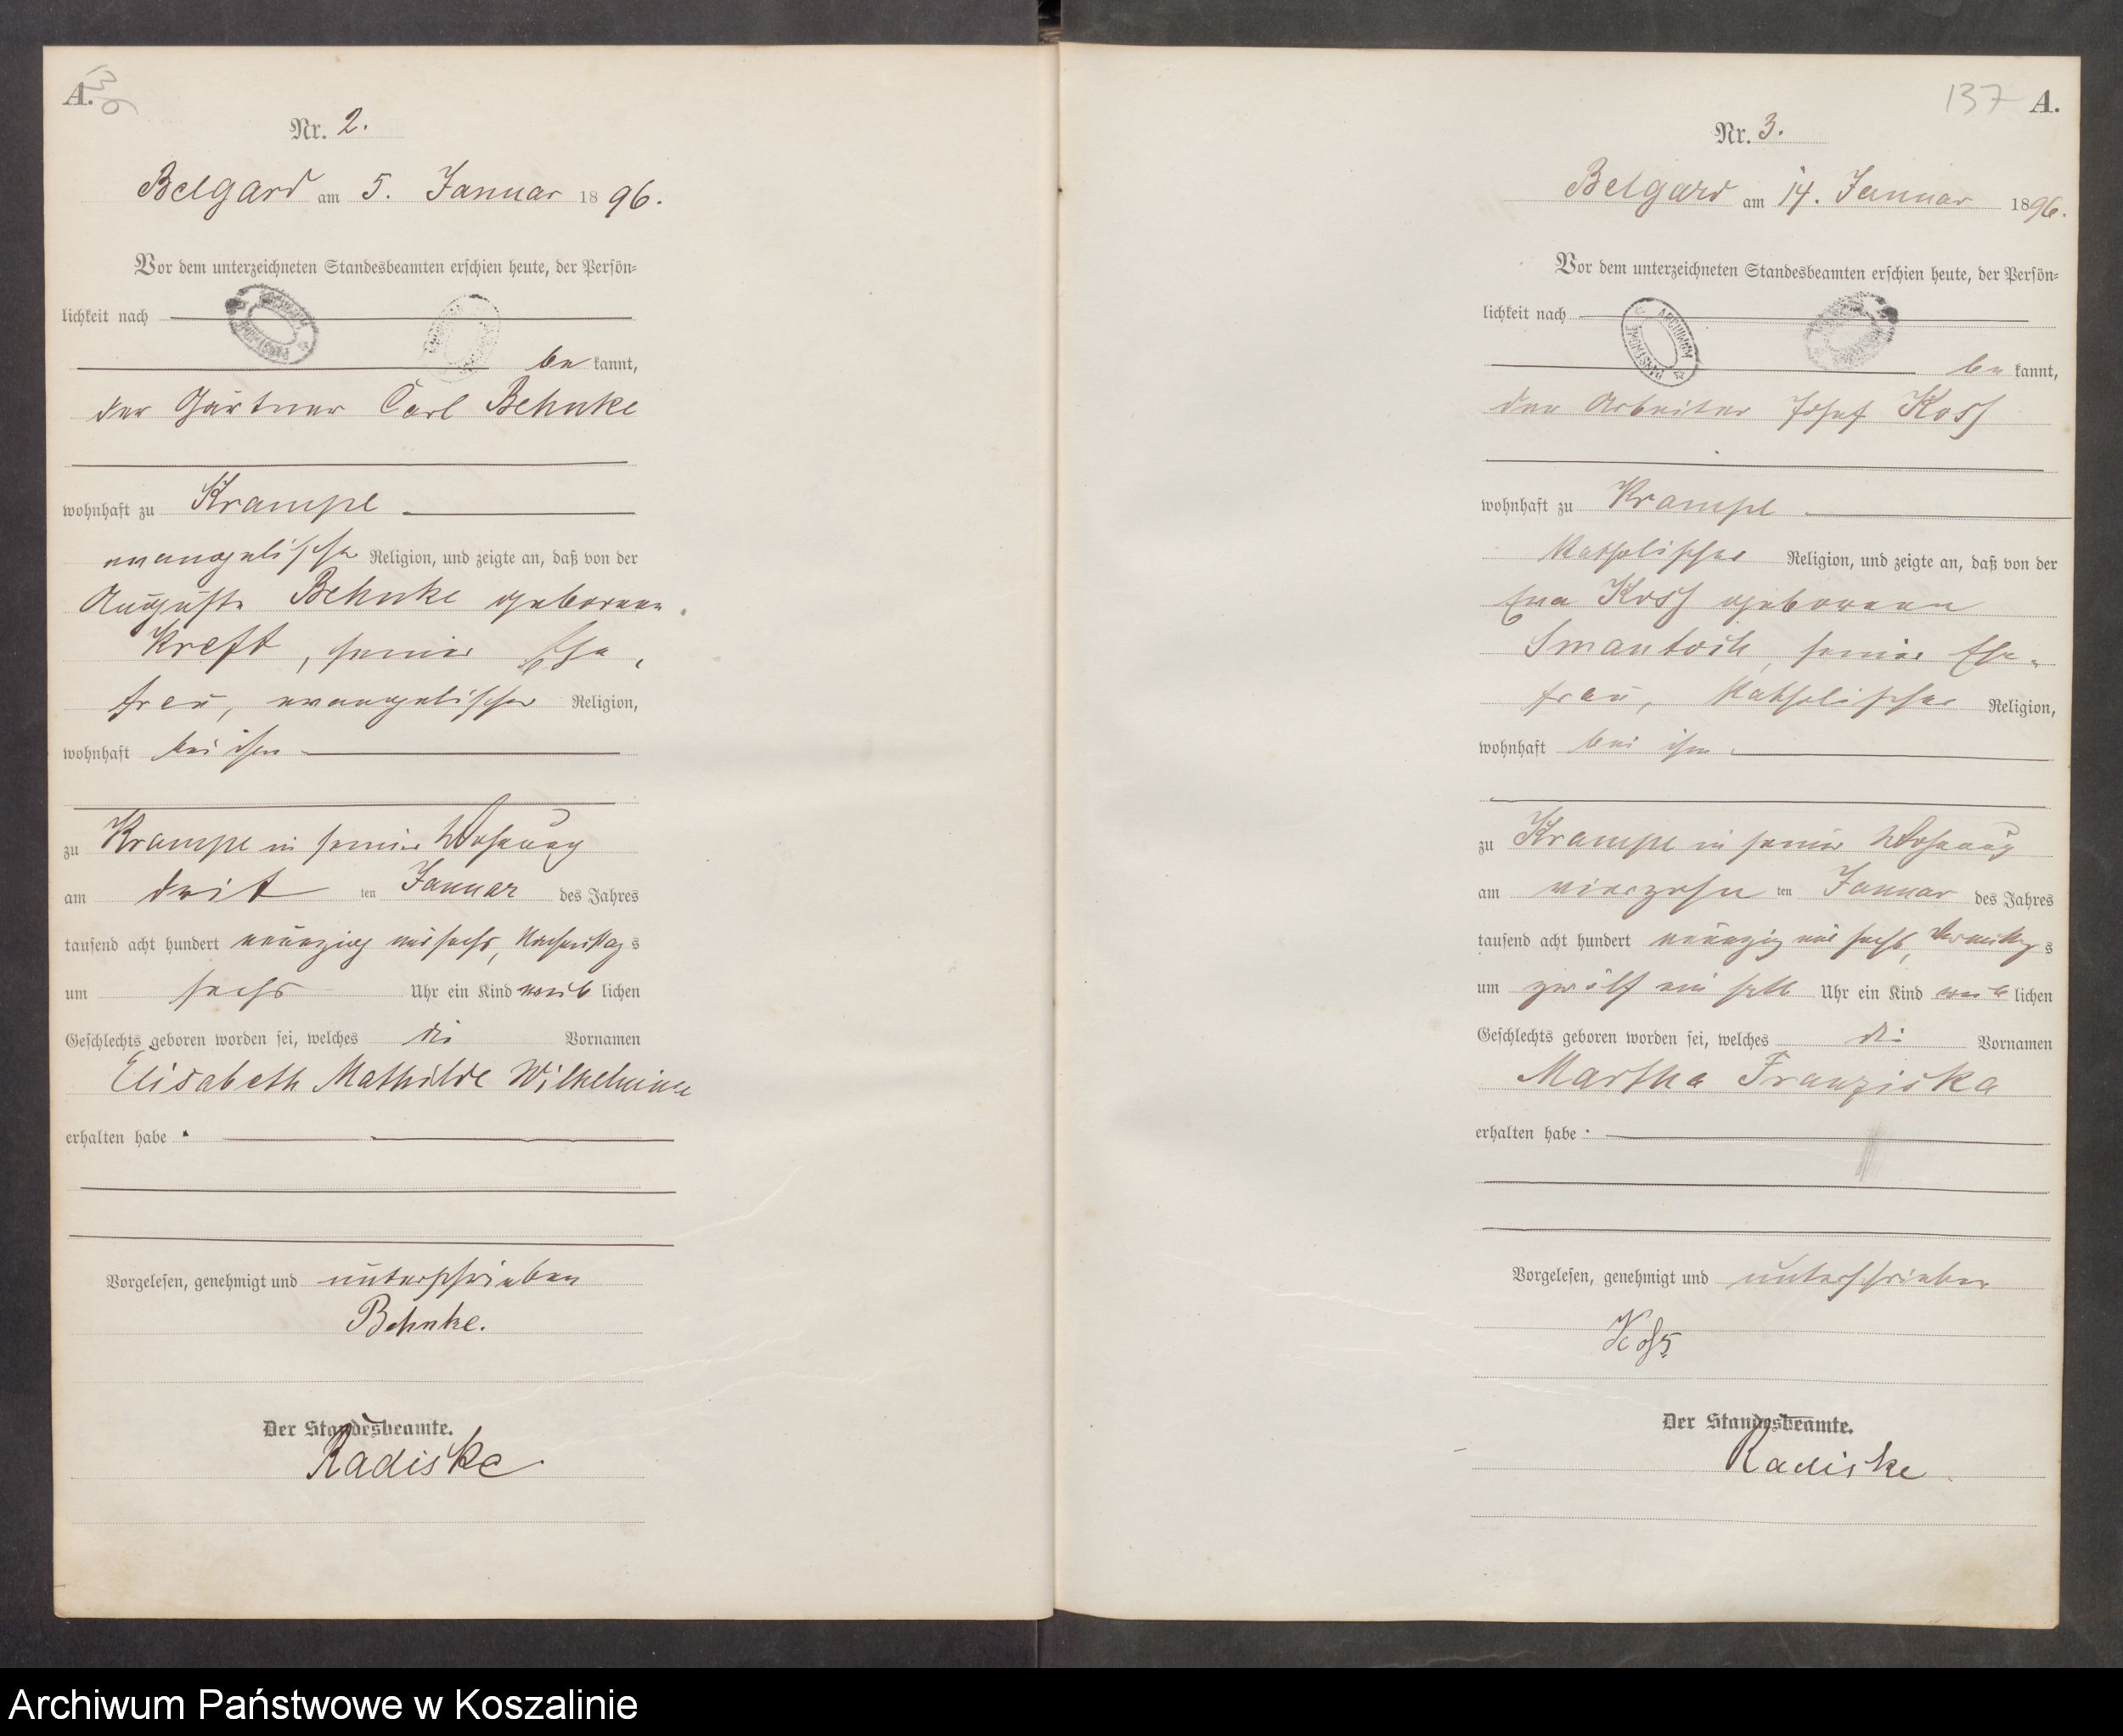 136
A.
Nr. 2.
Belgard am 5. Januar 1896.
Vor dem unterzeichneten Standesbeamten erschien heute, der Persön-
lichkeit nach
be kannt,
der Gärtner Carl Behnke
wohnhaft zu Krampe
evangelischer Religion, und zeigte an, daß von der
Auguste Behnke geborenen
Kreft, seiner Ehe-
frau, evangelischer Religion,
wohnhaft bei ihm
zu Krampe in seiner Wohnung
am drit ten Januar des Jahres
tausend acht hundert neunzig und sechs, Nachmittags
um sechs Uhr ein Kind weiblichen
Geschlechts geboren worden sei, welches die Vornamen
Elisabeth Mathilde Wilhelmine
erhalten habe.
Vorgelesen, genehmigt und unterschrieben
Behnke.
Der Standesbeamte.
Radiske
137
A.
Nr. 3.
Belgard am 14. Januar 1896.
Vor dem unterzeichneten Standesbeamten erschien heute, der Persön-
lichkeit nach
ARCHIWUM PAŃSTWOWE
be kannt,
der Arbeiter Josef Koss
wohnhaft zu Krampe
katholischer Religion, und zeigte an, daß von der
Eva Koss geborenen
seiner Ehe-
frau, katholischer Religion,
wohnhaft bei ihm
zu Krampe in seiner Wohnung
am vierzehn ten Januar des Jahres
tausend acht hundert neunzig und sechs, Vormittags
um zwölf ein halb Uhr ein Kind weiblichen
Geschlechts geboren worden sei, welches die Vornamen
Martha Franziska
erhalten habe.
Vorgelesen, genehmigt und unterschrieben
Koß
Der Standesbeamte.
Radiske
Archiwum Państwowe w Koszalinie